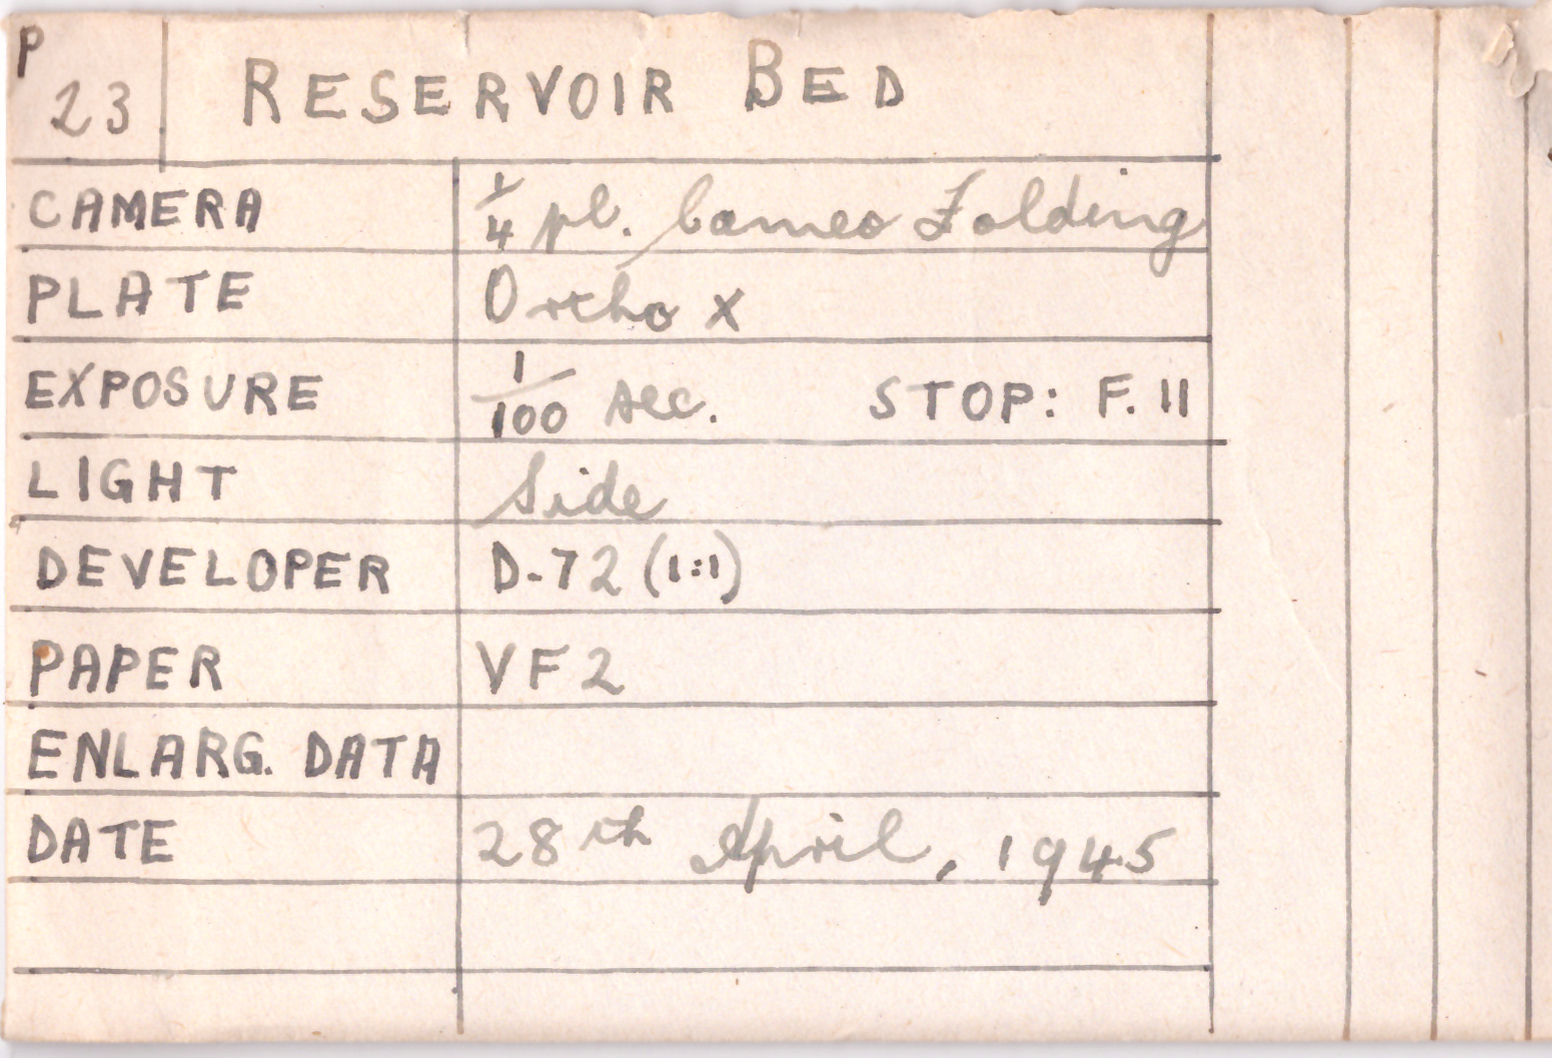 P 23 RESERVOIR BED
CAMERA 1/4 pl. Cameo Folding
PLATE Ortho X
EXPOSURE 1/100 sec. STOP: F. 11
LIGHT Side
DEVELOPER D-72 (1:1)
PAPER VF2
ENLARG. DATA
DATE 28th April, 1945